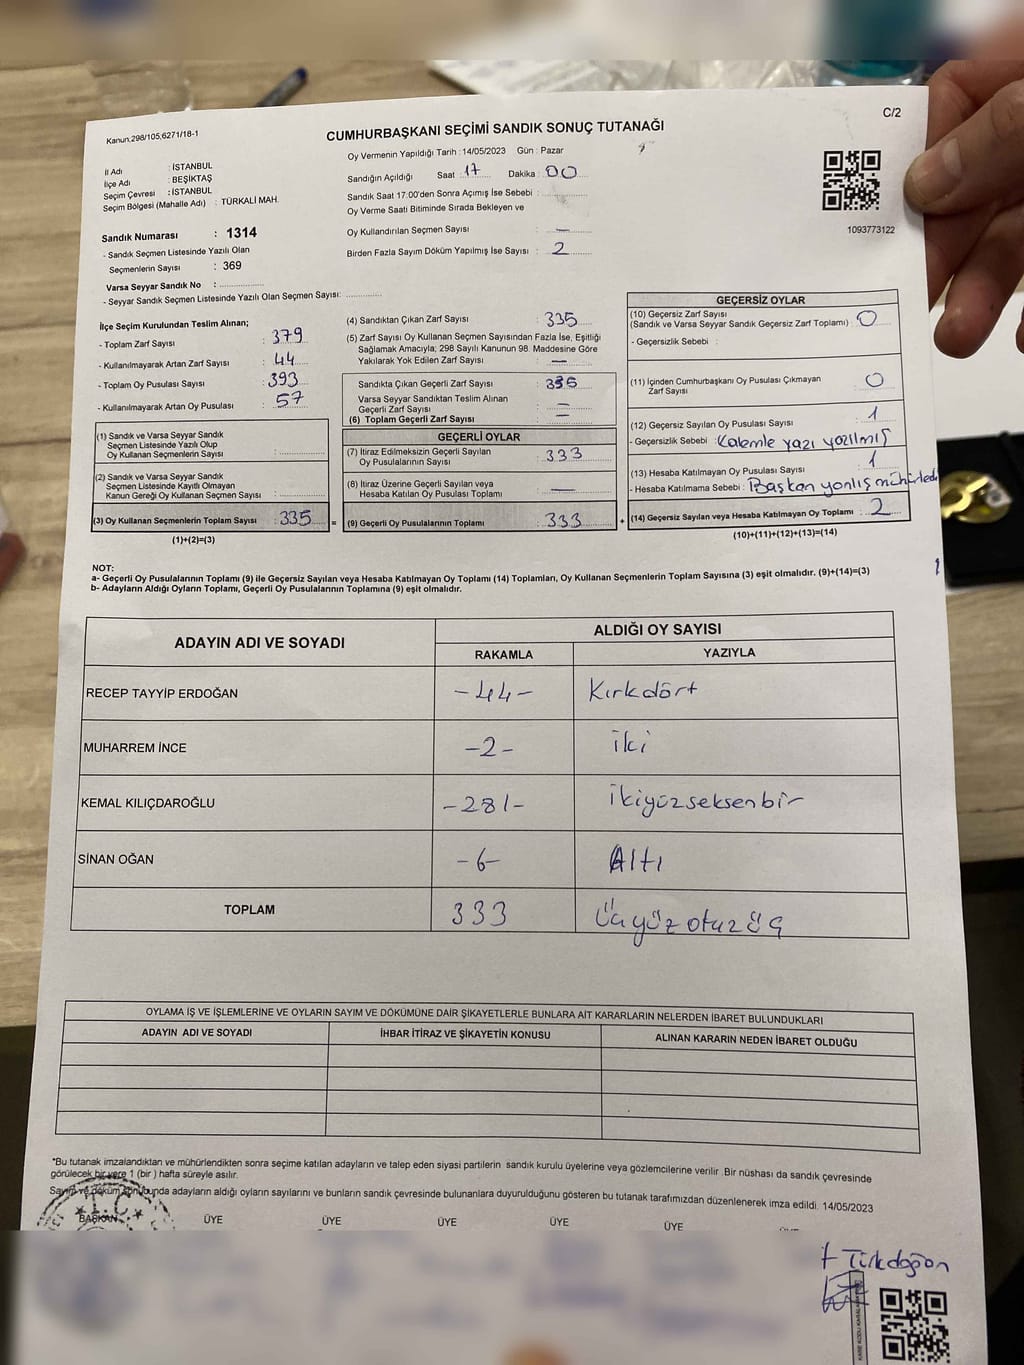 Kanun.298/105,6271/18-1
C/2
CUMHURBAŞKANI SEÇİMİ SANDIK SONUÇ TUTANAĞI
İl Adı : İSTANBUL
İlçe Adı : BEŞİKTAŞ
Seçim Çevresi : İSTANBUL
Seçim Bölgesi (Mahalle Adı) : TÜRKALİ MAH.
Sandık Numarası : 1314
- Sandık Seçmen Listesinde Yazılı Olan
Seçmenlerin Sayısı : 369
Varsa Seyyar Sandık No :
- Seyyar Sandık Seçmen Listesinde Yazılı Olan Seçmen Sayısı:
Oy Vermenin Yapıldığı Tarih : 14/05/2023 Gün : Pazar
Sandığın Açıldığı Saat : 17 Dakika : 00
Sandık Saat 17:00'den Sonra Açımış İse Sebebi :
Oy Verme Saati Bitiminde Sırada Bekleyen ve
Oy Kullandırılan Seçmen Sayısı : —
Birden Fazla Sayım Döküm Yapılmış İse Sayısı : 2
1093773122
İlçe Seçim Kurulundan Teslim Alınan;
- Toplam Zarf Sayısı : 379
- Kullanılmayarak Artan Zarf Sayısı : 44
- Toplam Oy Pusulası Sayısı : 393
- Kullanılmayarak Artan Oy Pusulası : 57
(1) Sandık ve Varsa Seyyar Sandık
Seçmen Listesinde Yazılı Olup
Oy Kullanan Seçmenlerin Sayısı :
(2) Sandık ve Varsa Seyyar Sandık
Seçmen Listesinde Kayıtlı Olmayan
Kanun Gereği Oy Kullanan Seçmen Sayısı :
(3) Oy Kullanan Seçmenlerin Toplam Sayısı : 335 =
(1)+(2)=(3)
(4) Sandıktan Çıkan Zarf Sayısı : 335
(5) Zarf Sayısı Oy Kullanan Seçmen Sayısından Fazla İse, Eşitliği
Sağlamak Amacıyla; 298 Sayılı Kanunun 98. Maddesine Göre
Yakılarak Yok Edilen Zarf Sayısı : —
Sandıkta Çıkan Geçerli Zarf Sayısı : 335
Varsa Seyyar Sandıktan Teslim Alınan
Geçerli Zarf Sayısı : —
(6) Toplam Geçerli Zarf Sayısı : —
GEÇERLİ OYLAR
(7) İtiraz Edilmeksizin Geçerli Sayılan
Oy Pusulalarının Sayısı : 333
(8) İtiraz Üzerine Geçerli Sayılan veya
Hesaba Katılan Oy Pusulası Toplamı : —
(9) Geçerli Oy Pusulalarının Toplamı : 333 +
GEÇERSİZ OYLAR
(10) Geçersiz Zarf Sayısı
(Sandık ve Varsa Seyyar Sandık Geçersiz Zarf Toplamı) : 0
- Geçersizlik Sebebi :
(11) İçinden Cumhurbaşkanı Oy Pusulası Çıkmayan
Zarf Sayısı : 0
(12) Geçersiz Sayılan Oy Pusulası Sayısı : 1
- Geçersizlik Sebebi : Kalemle yazı yazılmış
(13) Hesaba Katılmayan Oy Pusulası Sayısı : 1
- Hesaba Katılmama Sebebi : Başkan yanlış mühürledi
(14) Geçersiz Sayılan veya Hesaba Katılmayan Oy Toplamı : 2
(10)+(11)+(12)+(13)=(14)
NOT:
a- Geçerli Oy Pusulalarının Toplamı (9) ile Geçersiz Sayılan veya Hesaba Katılmayan Oy Toplamı (14) Toplamları, Oy Kullanan Seçmenlerin Toplam Sayısına (3) eşit olmalıdır. (9)+(14)=(3)
b- Adayların Aldığı Oyların Toplamı, Geçerli Oy Pusulalarının Toplamına (9) eşit olmalıdır.
ADAYIN ADI VE SOYADI
ALDIĞI OY SAYISI
RAKAMLA YAZIYLA
RECEP TAYYİP ERDOĞAN -44- Kırkdört
MUHARREM İNCE -2- iki
KEMAL KILIÇDAROĞLU -281- İkiyüzseksenbir
SİNAN OĞAN -6- Altı
TOPLAM 333 Üçyüz otuz üç
OYLAMA İŞ VE İŞLEMLERİNE VE OYLARIN SAYIM VE DÖKÜMÜNE DAİR ŞİKAYETLERLE BUNLARA AİT KARARLARIN NELERDEN İBARET BULUNDUKLARI
ADAYIN ADI VE SOYADI İHBAR İTİRAZ VE ŞİKAYETİN KONUSU ALINAN KARARIN NEDEN İBARET OLDUĞU
*Bu tutanak imzalandıktan ve mühürlendikten sonra seçime katılan adayların ve talep eden siyasi partilerin sandık kurulu üyelerine veya gözlemcilerine verilir .Bir nüshası da sandık çevresinde
görülecek bir yere 1 (bir ) hafta süreyle asılır.
Sayım ve döküm konubunda adayların aldığı oyların sayılarını ve bunların sandık çevresinde bulunanlara duyurulduğunu gösteren bu tutanak tarafımızdan düzenlenerek imza edildi. 14/05/2023
T.C.
BAŞKAN ÜYE ÜYE ÜYE ÜYE ÜYE
Türkdoğan